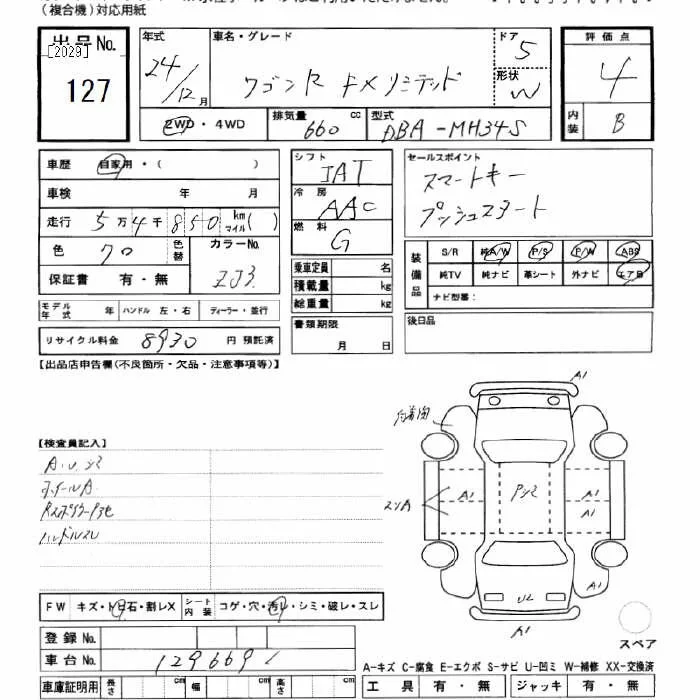 (複合機)対応用紙
出品No.
[2029]
127
年式
24/12月
車名・グレード
ワゴンR FXリミテッド
ドア
5
形状
W
評価点
4
内装
B
2WD・4WD
排気量 660 cc
型式
DBA-MH34S
車歴 自家用・( )
車検 年 月
走行 5万4千850 km マイル( )
色 クロ 色替
カラーNo.
ZJ3
保証書 有・無
シフト
IAT
冷房
AAC
燃料
G
乗車定員 名
積載量 kg
総重量 kg
セールスポイント
スマートキー
プッシュスタート
装備品
S/R 純A/W P/S P/W ABS
純TV 純ナビ 革シート 外ナビ エアB
ナビ型番:
モデル年式 年 ハンドル 左・右 ディーラー・並行
リサイクル料金 8930 円 預託済
書類期限
月 日
後日品
【出品店申告欄(不良箇所・欠品・注意事項等)】
A1
【検査員記入】
A.U.シミ
ホイールA
ハンドルスレ
スリA
A1
A1
A1
U2
A1
A1
FW キズ・ト石・割レX
シート内装 コゲ・穴・汚レ・シミ・破レ・スレ
登録No.
車台No. 1296691
スペア
A-キズ C-腐食 E-エクボ S-サビ U-凹ミ W-補修 XX-交換済
車庫証明用 長さ cm 幅 cm 高さ cm
工具 有・無 ジャッキ 有・無